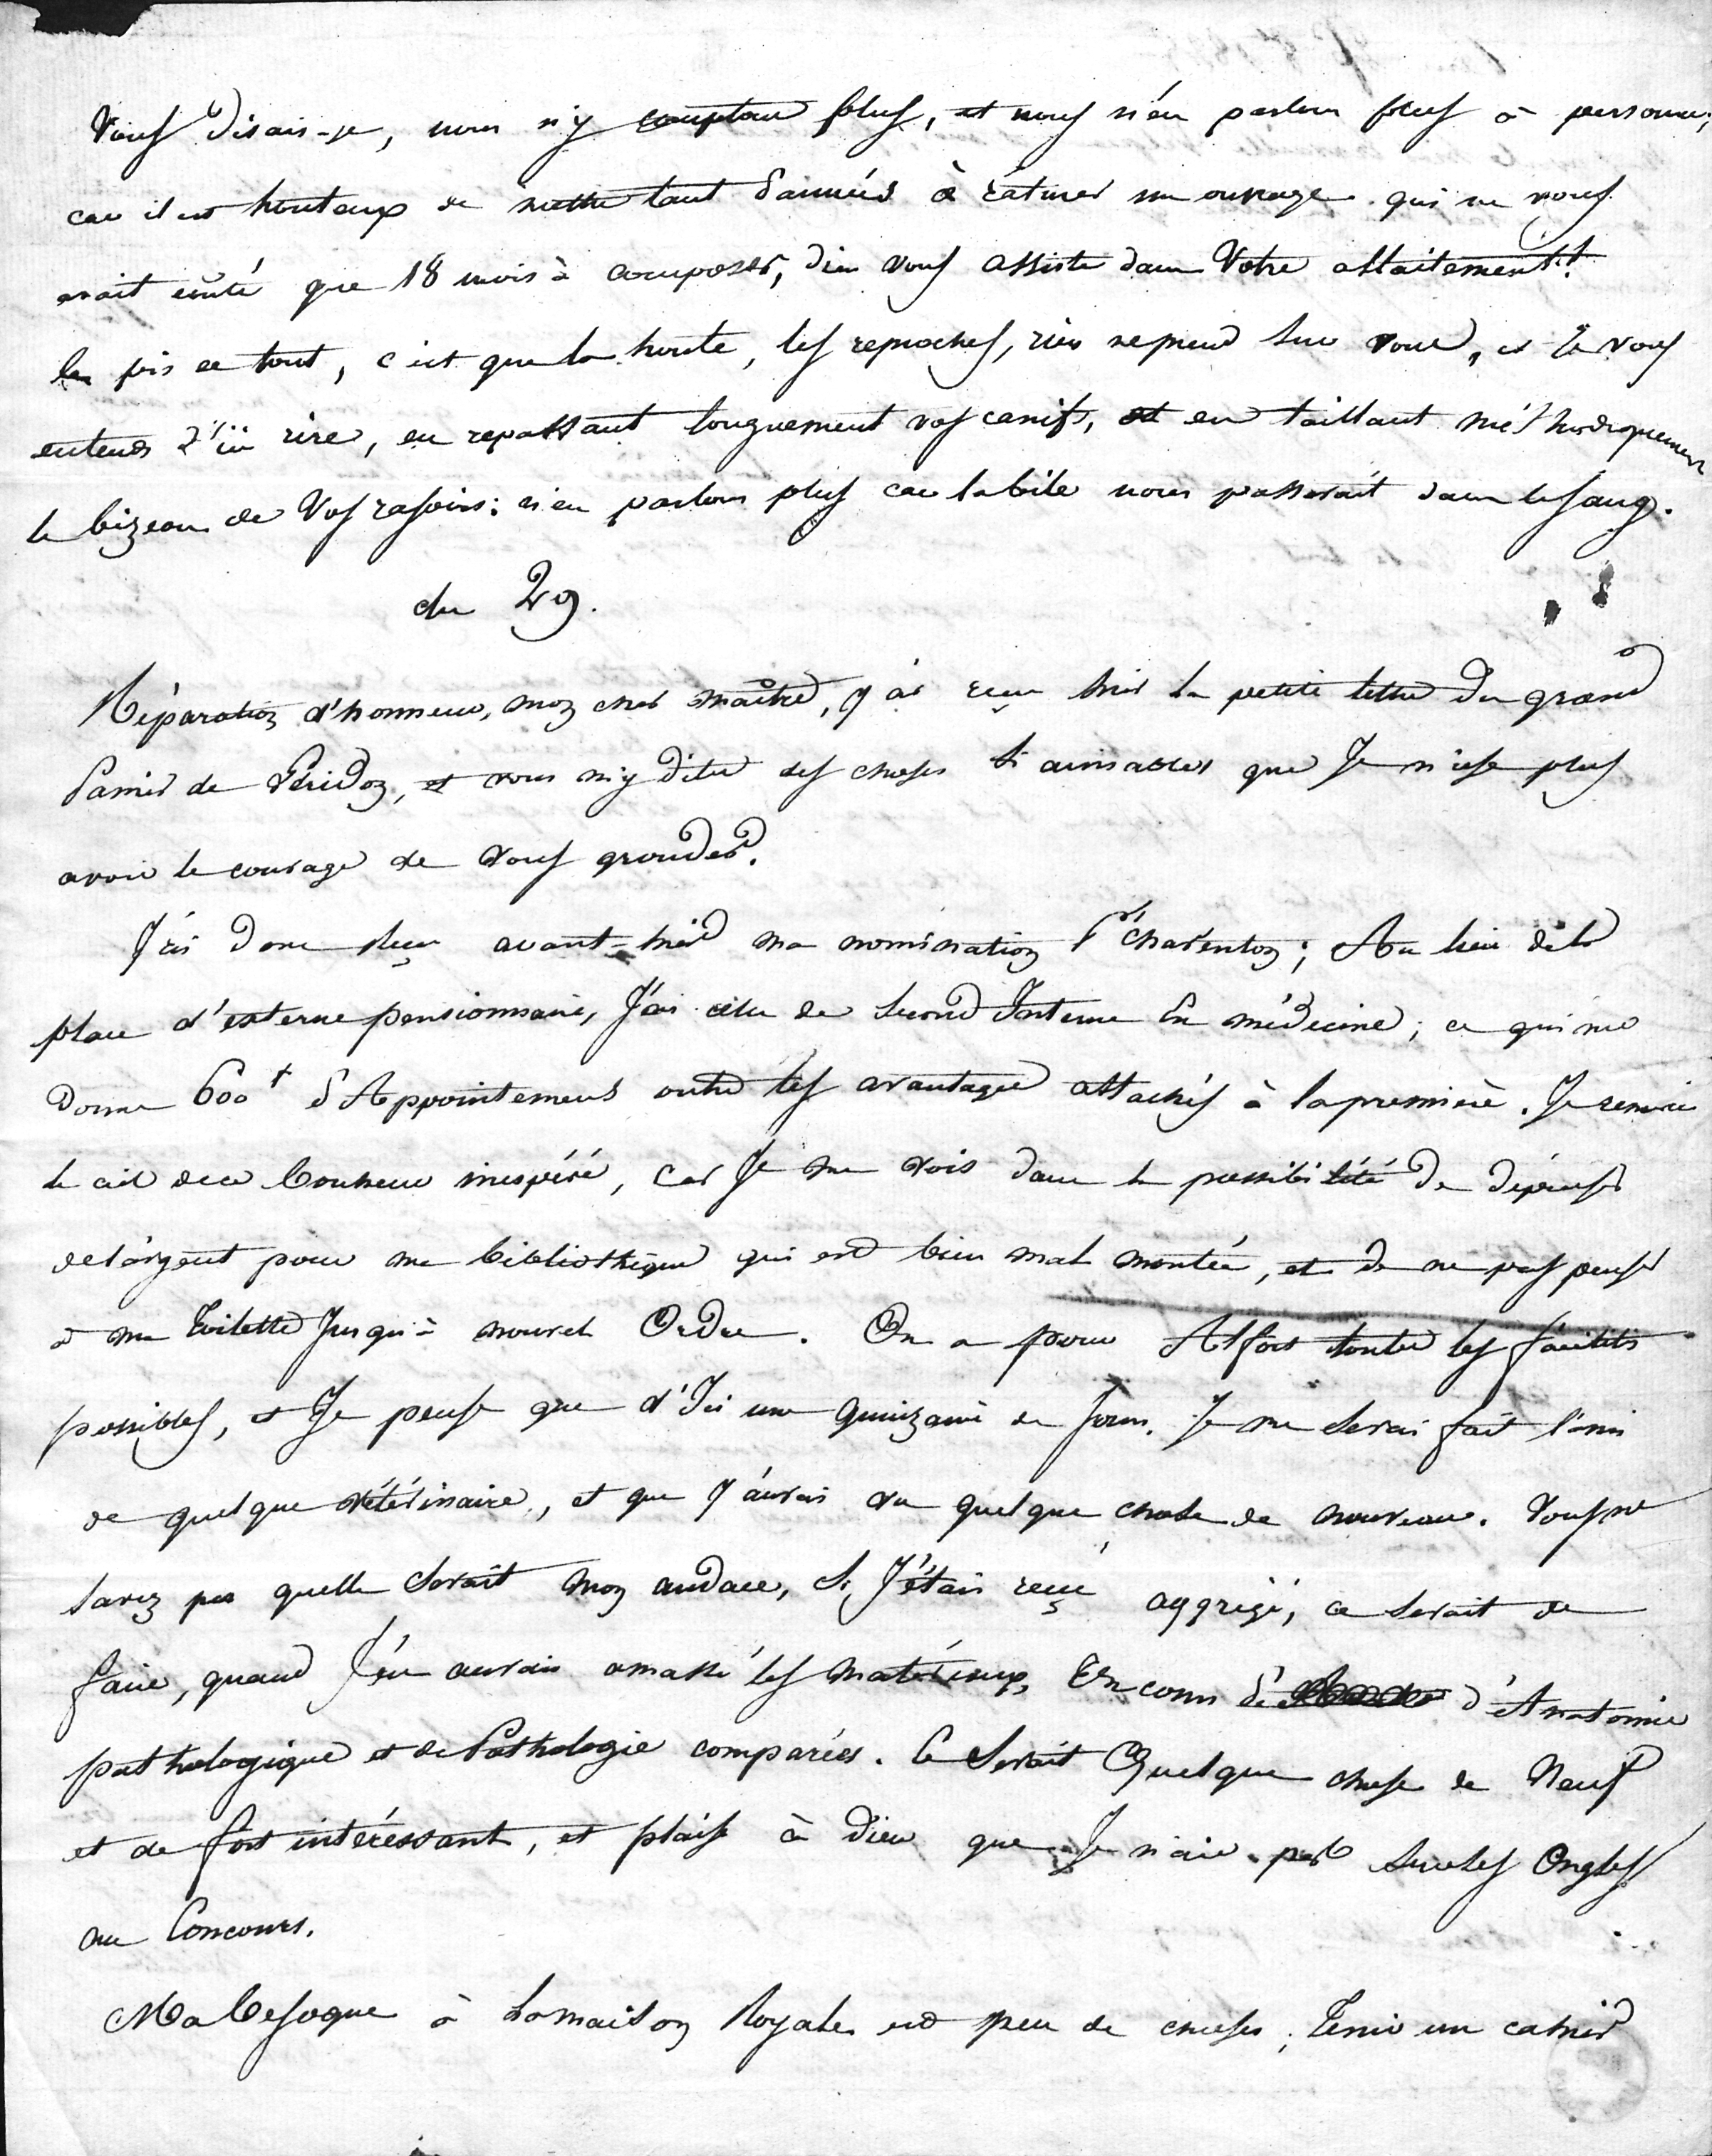 vous disais-je, nous n'y comptons plus, et nous n'en parlons plus à personne;
car il est honteux de mettre tant d'années à raturer un ouvrage qui ne vous
avait coûté que 18 mois à composer, dieu vous assiste dans Votre allaitement!!
le pis de tout, c'est que la honte, les reproches, rien ne prend sur vous, et je vous
entends d'ici rire, en repassant longuement vos canifs, et en taillant méthodiquement
le bizeau de Vos rasoirs: n'en parlons plus car la bile nous passerait dans le sang.
du 29.
Réparation d'honneur, mon cher maître, j'ai reçu hier la petite lettre du grand
damis de Péridon, et vous m'y dites des choses si aimables que Je n'ose plus
avoir le courage de vous gronder.
J'ai donc reçu avant-hier ma nomination pr charenton; Au lieu de la
place d'externe pensionnaire, J'ai celle de second Interne En médecine; ce qui me
donne 600t d'Appointemens outre les avantages attachés à la première. Je remercie
le ciel de ce bonheur inespéré, car Je me vois dans la possibilité De dépenser
de l'argent pour ma bibliothèque qui est bien mal montée, et de ne pas penser
à ma Toilette Jusqu'à nouvel Ordre. On a pour Alfort toutes les facilités
possibles, et Je pense que d'Ici une quinzaine de Jours, Je me serai fait l'ami
de quelque vétérinaire, et que J'aurai vu quelque chose de nouveau. Vous ne
savez pas quelle serait mon audace, si J'étais reçu aggrégé, ce serait de
faire, quand J'en aurais amassé les matériaux, Un cours d'Anatomie
pathologique et de Pathologie comparées. Ce serait Quelque chose de Neuf
et de fort intéressant, et plaise à Dieu que Je n'aie pas sur les Ongles
au Concours.
Ma besogne à la maison Royale est peu de choses; Tenir un cahier